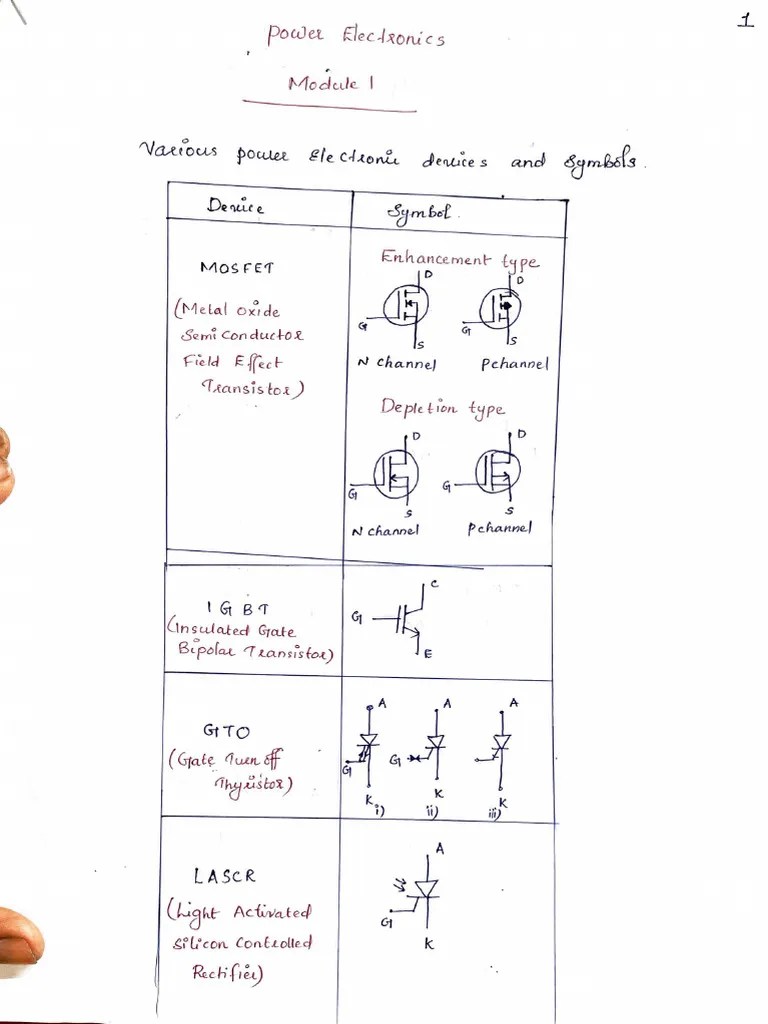 1
Power Electronics
Module 1
Various power Electronic devices and Symbols.
Device
Symbol.
MOSFET
(Metal oxide
Semi conductor
Field Effect
Transistor)
Enhancement type
D
G
S
N channel
D
G
S
P channel
Depletion type
D
G
S
N channel
D
G
S
P channel
IGBT
(Insulated Gate
Bipolar Transistor)
C
G
E
GTO
(Gate Turn off
Thyristor)
A
G
K
i)
A
G
K
ii)
A
K
iii)
LASCR
(Light Activated
Silicon Controlled
Rectifier)
A
G
K